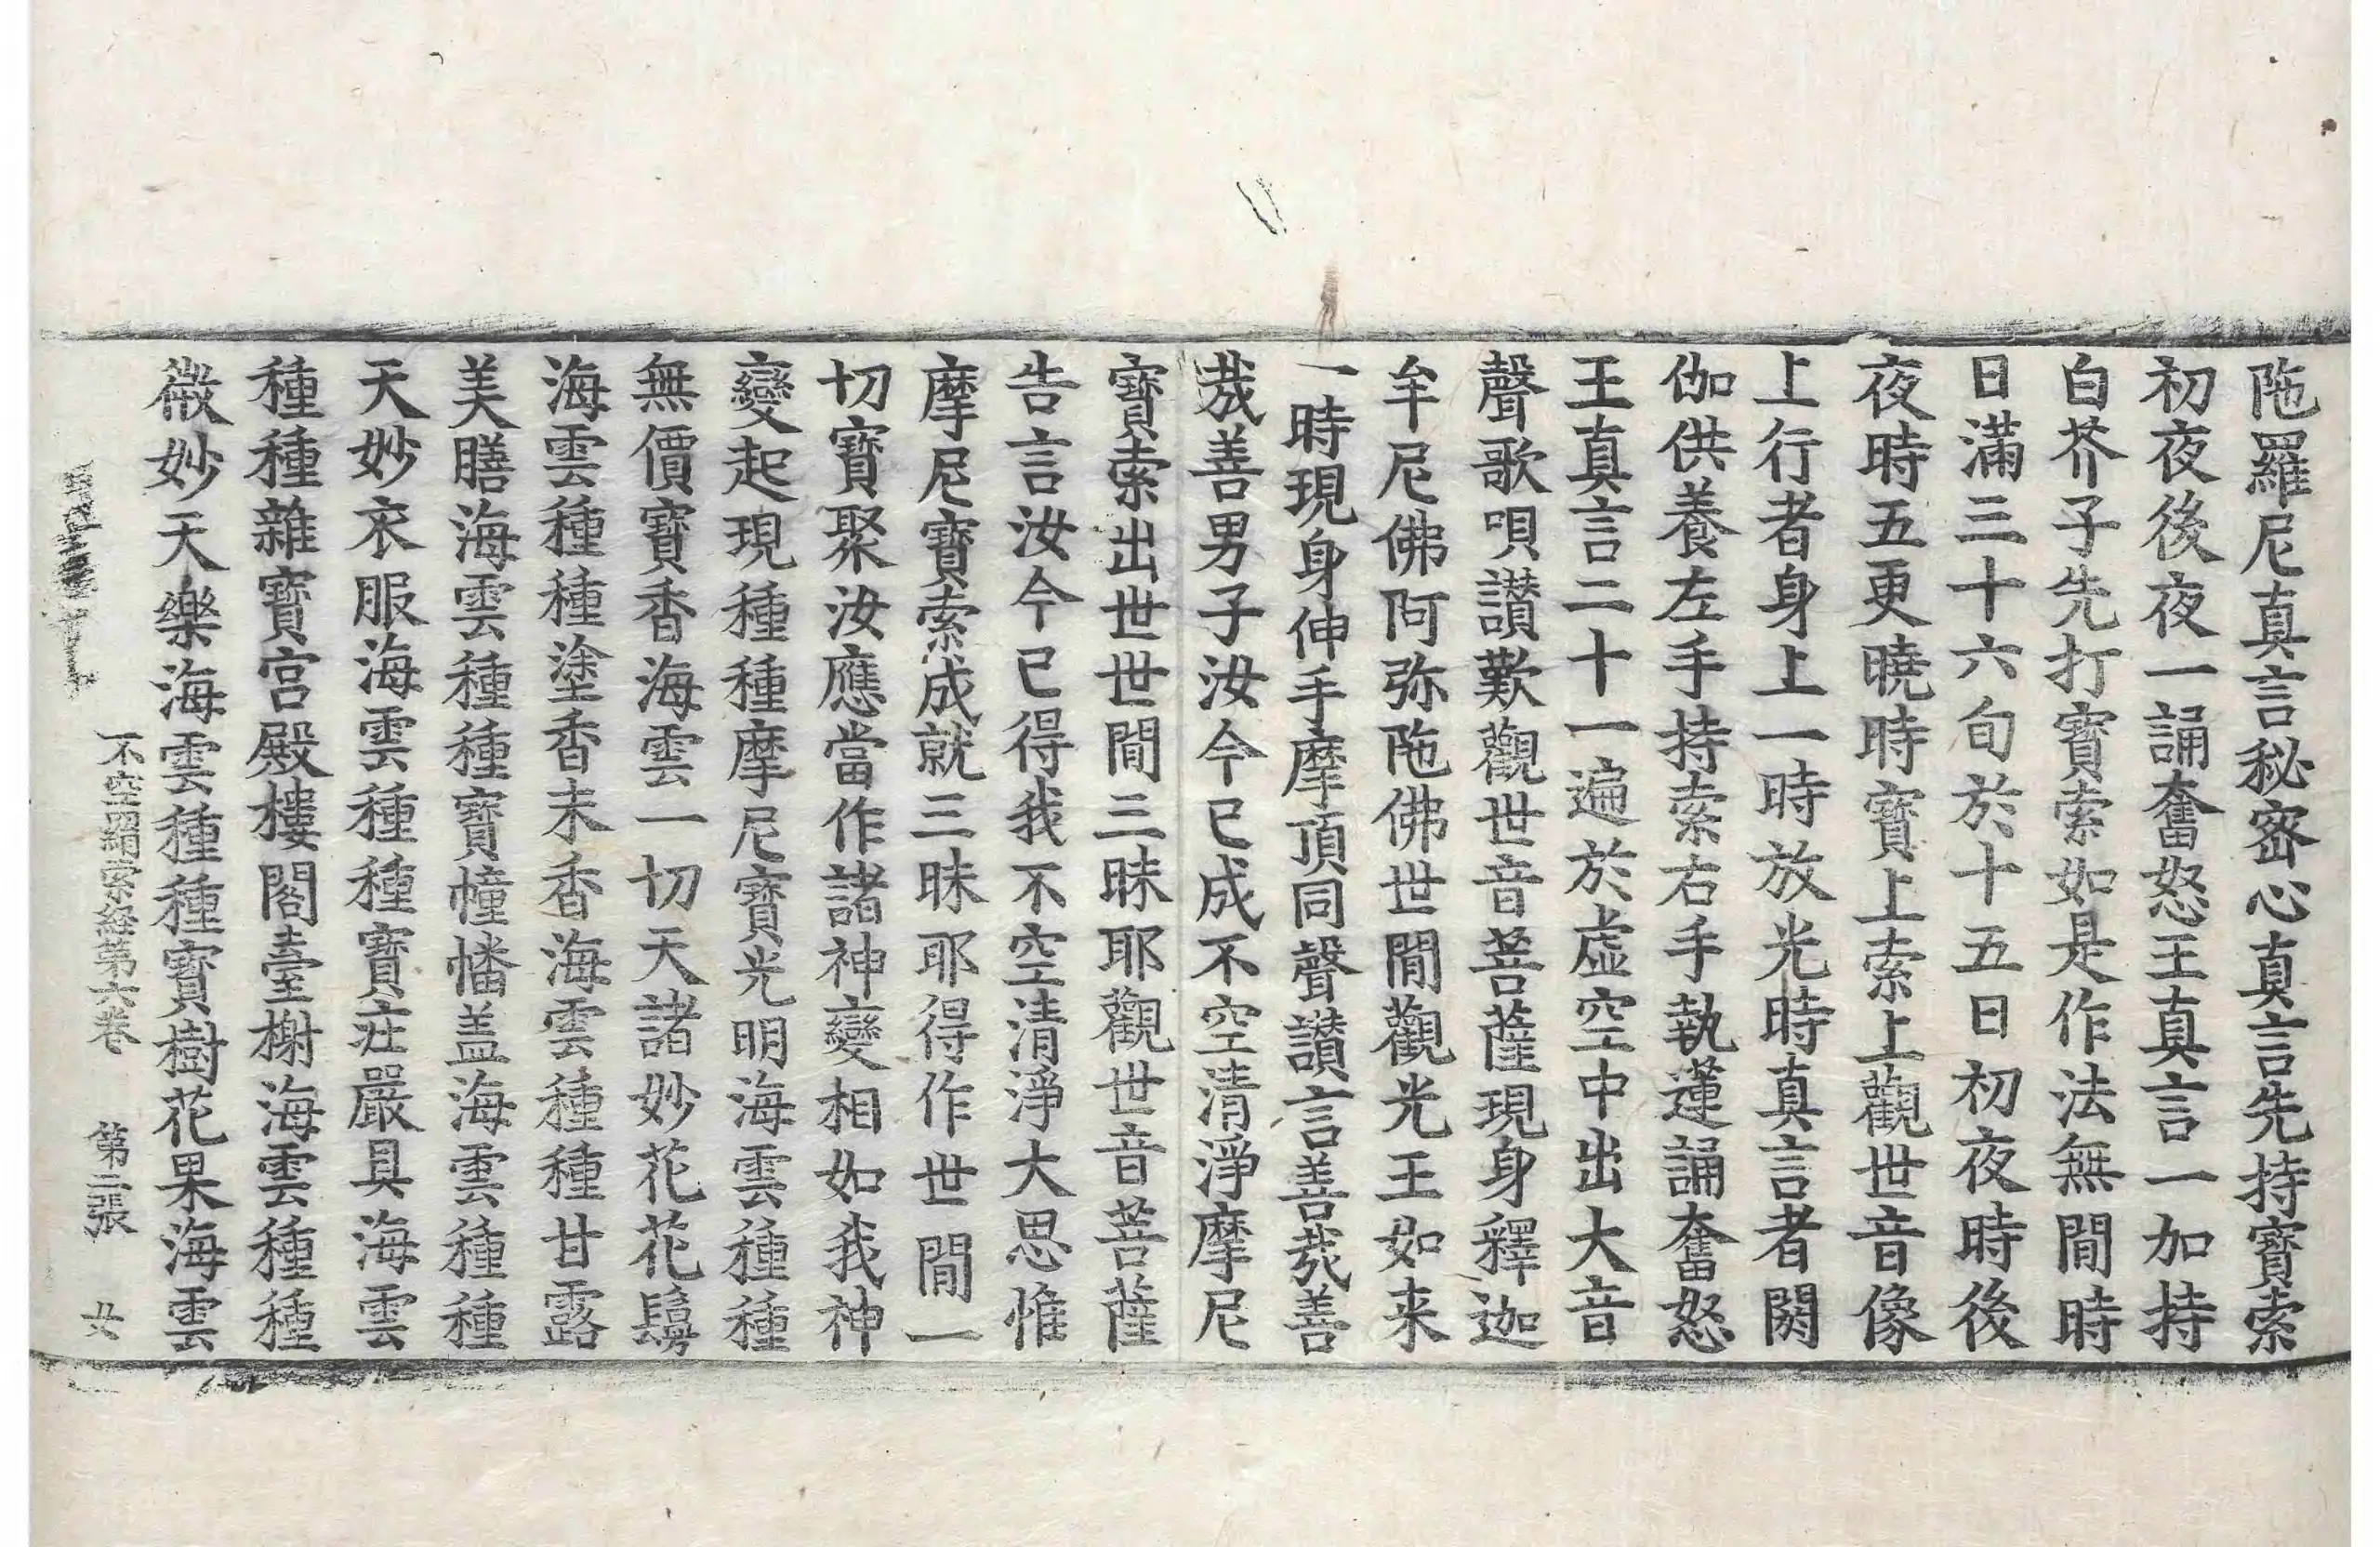 陁羅尼真言秘密心真言先持寶索
初夜後夜一誦奮怒王真言一加持
白芥子先打寳索如是作法無間時
日滿三十六旬於十五日初夜時後
夜時五更曉時寳上索上觀世音像
上行者身上一時放光時真言者閼
伽供養左手持索右手執蓮誦奮怒
王真言二十一遍於虛空中出大音
聲歌唄讃歎觀世音菩薩現身釋迦
牟尼佛阿弥陁佛世間觀光王如来
一時現身伸手摩頂同聲讃言善㢤善
㢤善男子汝今已成不空清淨摩尼
寳索出世世間三昧耶觀世音菩薩
告言汝今已得我不空清淨大思惟
摩尼寳索成就三昧耶得作世間一
切寳聚汝應當作諸神變相如我神
變起現種種摩尼寳光明海雲種種
無價寳香海雲一切天諸妙花花鬘
海雲種種塗香末香海雲種種甘露
美膳海雲種種寳幢幡盖海雲種種
天妙衣服海雲種種寳莊嚴具海雲
種種雜寳宮殿樓閣臺榭海雲種種
微妙天樂海雲種種寳樹花果海雲
不空羂索經第六卷 第二張 女